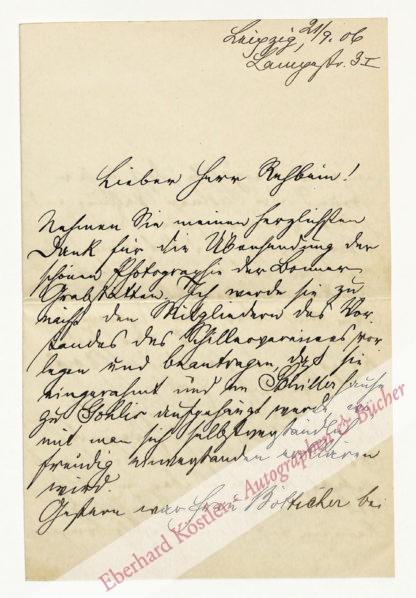 Leipzig, 21/9. 06
Lampestr. 3 I
Lieber Herr Rehbein!
Nehmen Sie meinen herzlichsten
Dank für die Übersendung der
schönen Photographie der Bonner
Grabstätten. Ich werde sie zu
nächst den Mitgliedern des Vor
standes des Schillervereines vor
legen und beantragen, daß sie
eingerahmt und im Schillerhause
zu Gohlis aufgehängt werde, wo
mit man sich selbstverständlich
freudig einverstanden erklären
wird.
Gestern war Frau Bötticher bei
Eberhard Köstler - Autographen & Bücher